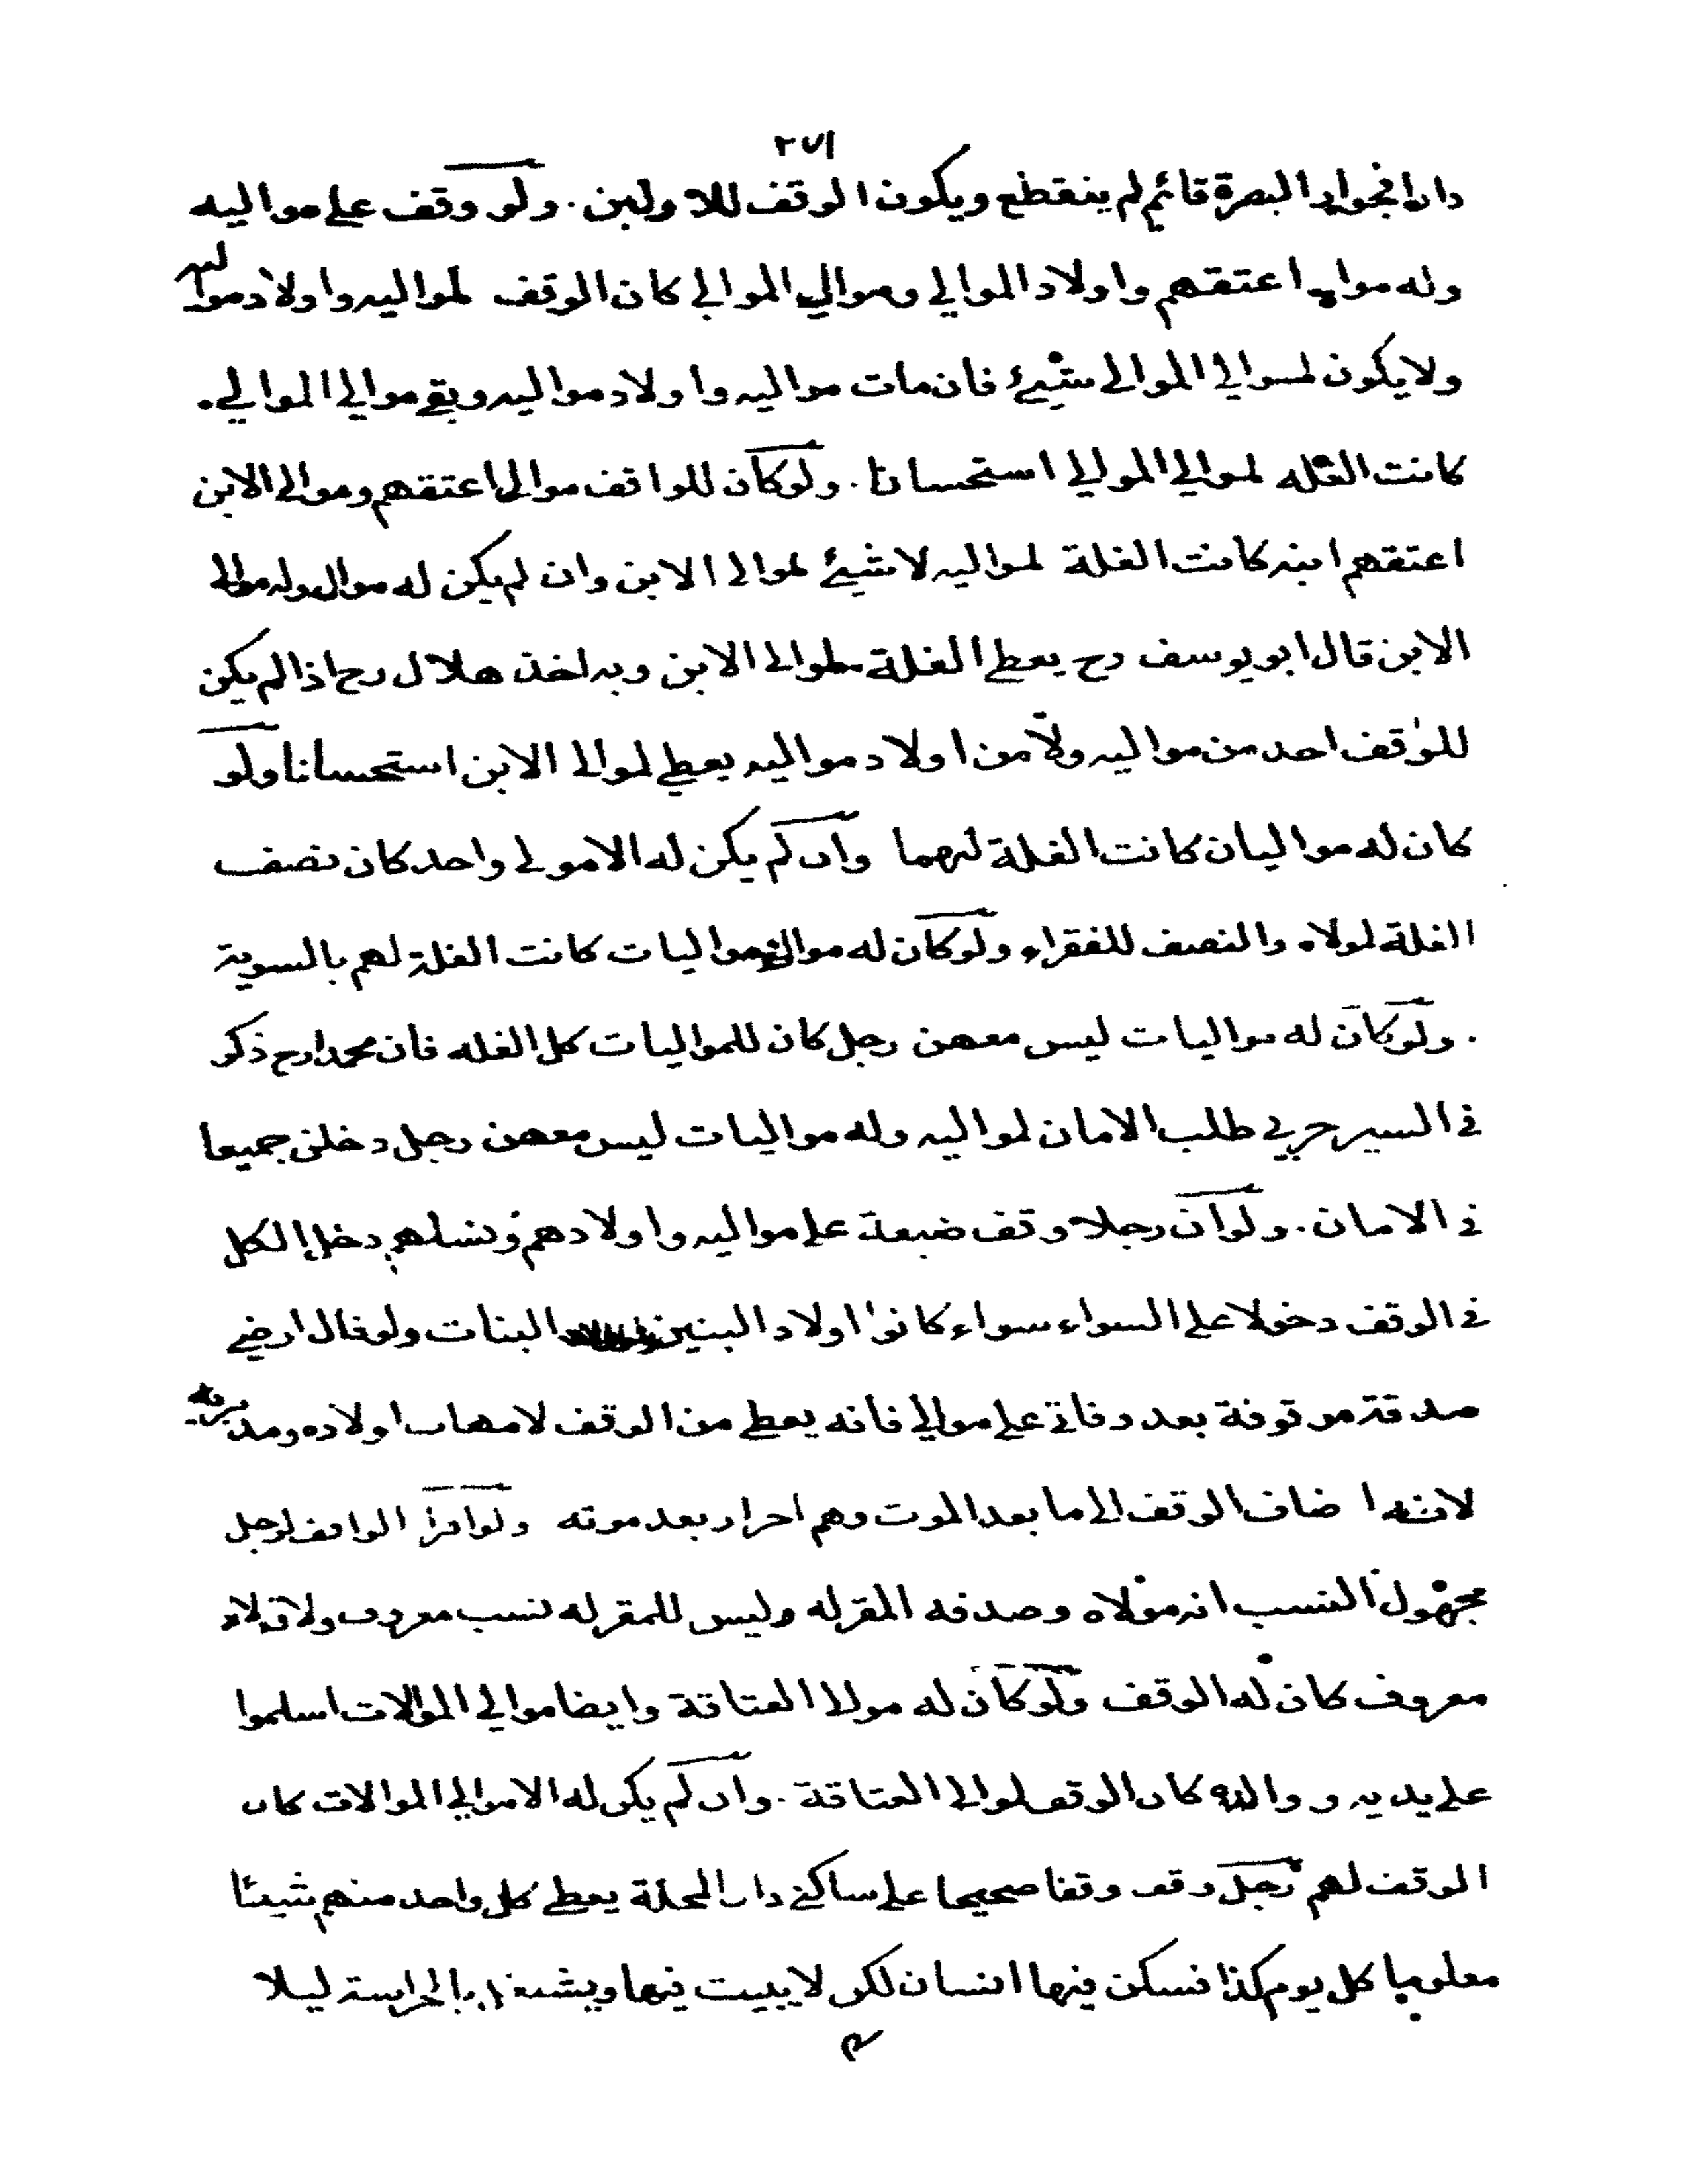 ٢٧١
دارا فجوار البصرة قائم لم ينقطع ويكون الوقف للاولين. ولو وقف على مواليه
وله موالي اعتقهم واولاد الموالي وموالي الموالي كان الوقف لمواليه واولاد مواليه
ولا يكون لموالي الموالي شيئ فان مات مواليه واولاد مواليه وبقي موالي الموالي.
كانت الغله لموالي الموالي استحسانا. ولو كان للواقف موالي اعتقهم وموالي الابن
اعتقهم ابنه كانت الغلة لمواليه لا شيئ لموالي الابن وان لم يكن له موال وله موالي
الابن قال ابو يوسف رح يعطى الغلة لموالي الابن وبه اخذ هلال رح اذا لم يكن
للوٰقف احد من مواليه ولا من اولاد مواليه يعطي لموالي الابن استحسانا ولو
كان له مواليان كانت الغلة لهما وان لم يكن له الا مولى واحد كان نصف
الغلة لمولاه والنصف للفقراء ولو كان له موالي ومواليات كانت الغلة لهم بالسوية
. ولو كان له مواليات ليس معهن رجل كان للمواليات كل الغله فان محمدا رح ذكر
في السير حربي طلب الامان لمواليه وله مواليات ليس معهن رجل دخلن جميعا
في الامان. ولو ان رجلا وقف ضيعة على مواليه واولادهم ونسلهم دخل الكل
في الوقف دخولا على السواء سواء كانوا اولاد البنين البنات ولو قال ارضي
صدقة موقوفة بعد وفاتي على موالي فانه يعطى من الوقف لامهات اولاده ومدبريه
لانه اضاف الوقف الى ما بعد الموت وهم احرار بعد موته ولو اقر الواقف لرجل
مجهول النسب انه مولاه وصدقه المقر له وليس للمقر له نسب معروف ولا ولاء
معروف كان له الوقف ولو كان له موالي العتاقة وايضا موالي الموالات اسلموا
على يديه و والوه كان الوقف لموالي العتاقة. وان لم يكن له الا موالي الموالات كان
الوقف لهم رجل وقف وقفا صحيحا على ساكني دار المحلة يعطى كل واحد منهم شيئا
معلوما كل يوم كذا فسكن فيها انسان لكن لا يبيت فيها ويشتغل بالحراسة ليلا